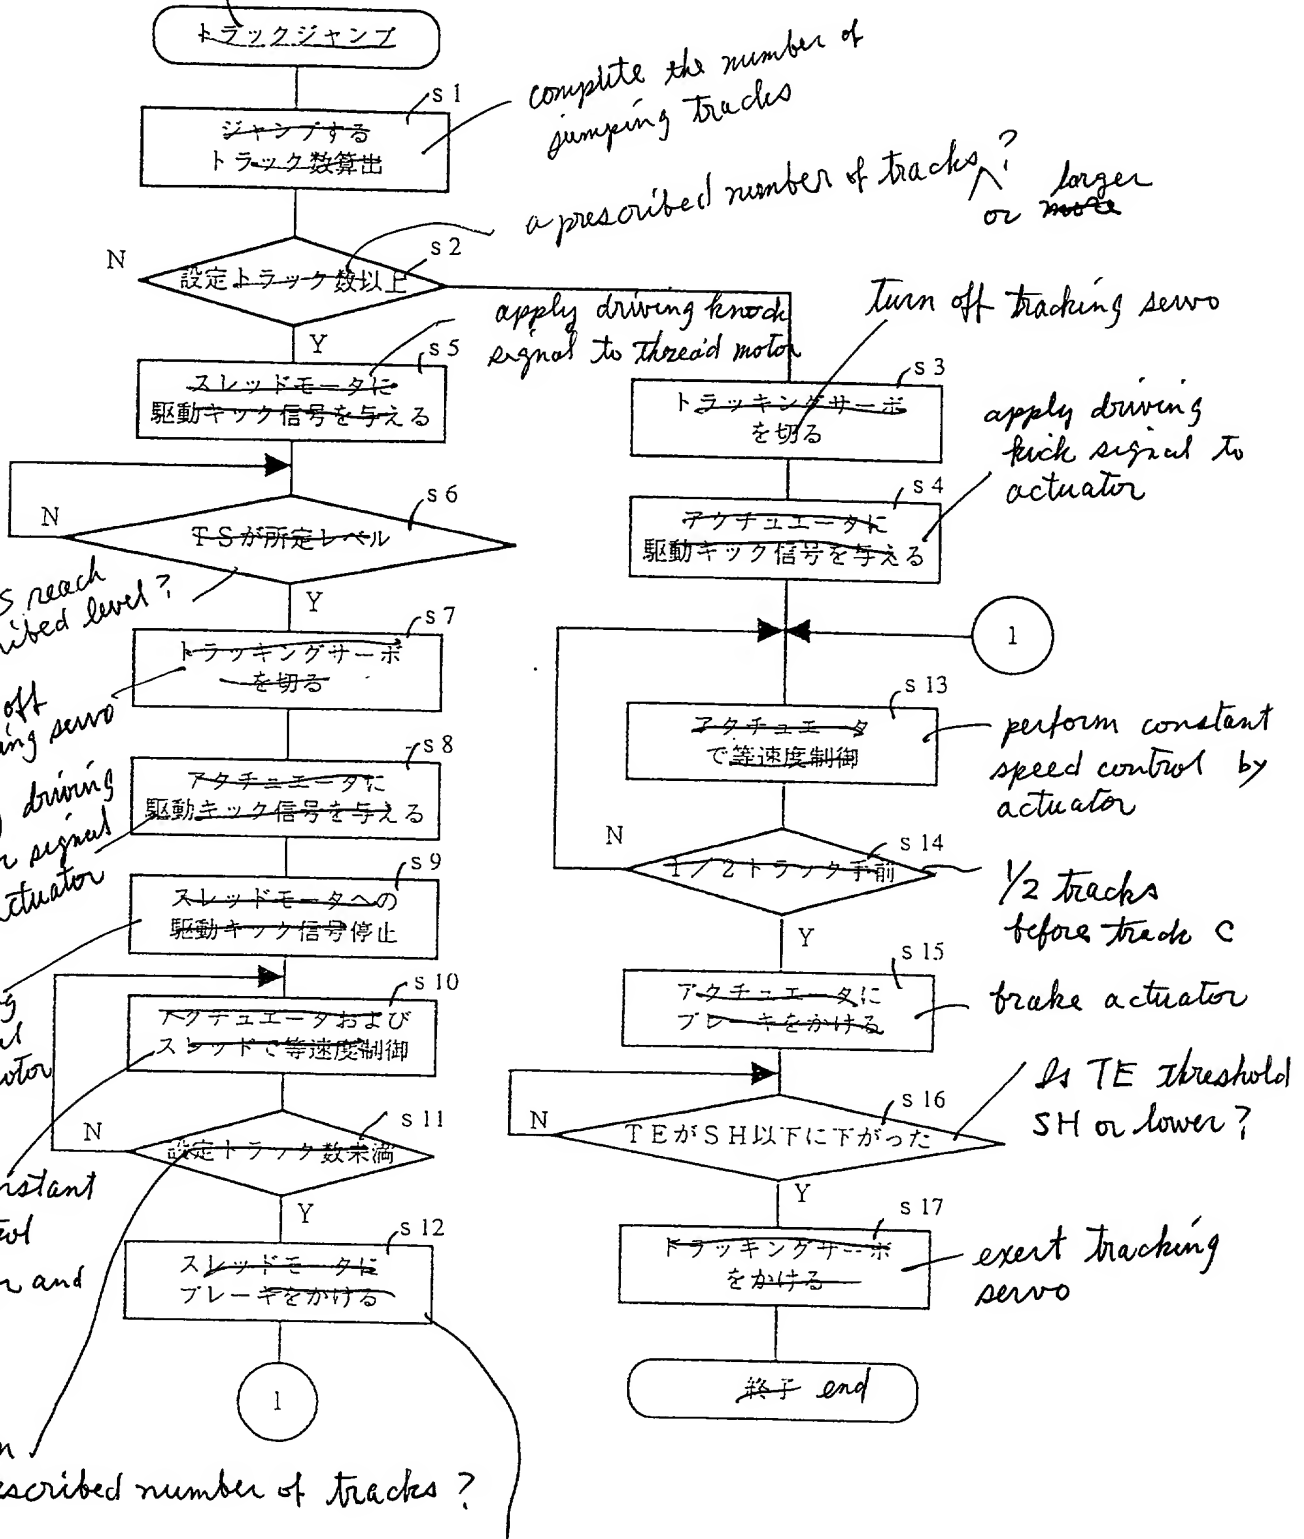 トラックジャンプ
s 1
ジャンプする
トラック数算出
complete the number of
jumping tracks
a prescribed number of tracks ?
or more larger
N
s 2
設定トラック数以上
Y
apply driving knock
signal to thread motor
s 5
スレッドモータに
駆動キック信号を与える
N
s 6
TSが所定レベル
Y
S reach
level?
s 7
トラッキングサーボ
を切る
off
servo
s 8
アクチュエータに
駆動キック信号を与える
driving
signal
s 9
スレッドモータへの
駆動キック信号停止
s 10
アクチュエータおよび
スレッドで等速度制御
and
N
s 11
設定トラック数未満
Y
s 12
スレッドモータに
ブレーキをかける
1
number of tracks ?
turn off tracking servo
s 3
トラッキングサーボ
を切る
apply driving
kick signal to
actuator
s 4
アクチュエータに
駆動キック信号を与える
1
s 13
アクチュエータ
で等速度制御
perform constant
speed control by
actuator
N
s 14
1/2トラック手前
1/2 tracks
before track C
Y
s 15
アクチュエータに
ブレーキをかける
brake actuator
Is TE threshold
SH or lower?
N
s 16
TEがSH以下に下がった
Y
s 17
トラッキングサーボ
をかける
exert tracking
servo
終了 end